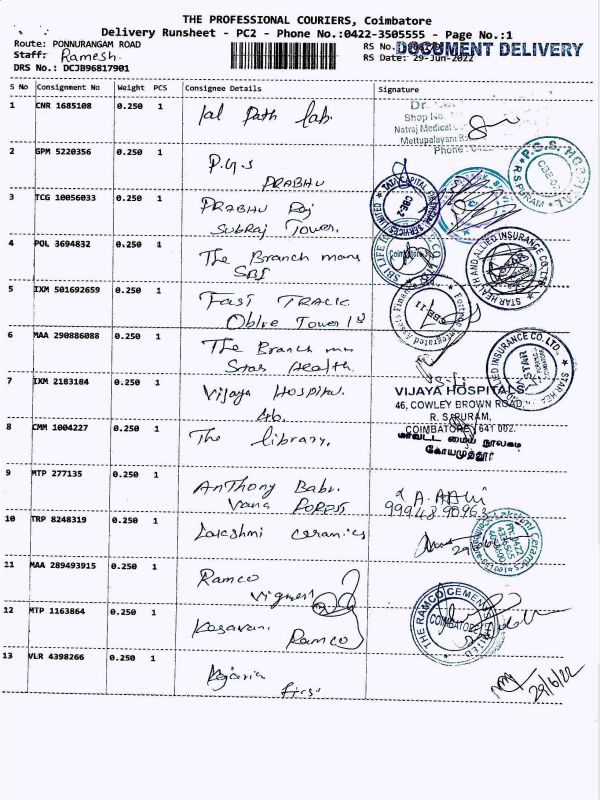 THE PROFESSIONAL COURIERS, Coimbatore
Delivery Runsheet - PC2 - Phone No.:0422-3505555 - Page No.:1
Route: PONNURANGAM ROAD
RS No.
DOCUMENT DELIVERY
Staff: Ramesh.
RS Date: 29-Jun-2022
DRS No.: DCJB96817901
S No Consignment No Weight PCS Consignee Details Signature
1 CNR 1685108 0.250 1 lal Path lab.
Dr.
Shop No.
Natraj Medical
Mettupalayam
Phone
2 GPM 5220356 0.250 1 P.G.S
PRABHU
P.G.S. HOSPITAL
R S PURAM
3 TCG 10056033 0.250 1 PRABHU Raj
Subraj Tower.
TATA CAPITAL FINANCIAL SERVICES LIMITED
CBE-2
4 POL 3694832 0.250 1 The Branch mana
SBI
SBI LIFE
Coimbatore
STAR HEALTH AND ALLIED INSURANCE CO.LTD
5 IXM 501692659 0.250 1 FAST TRACK
Oblie Tower 1st
CBE-11
6 MAA 290886088 0.250 1 The Branch mn
Star Health
ALLIED INSURANCE CO. LTD.,
STAR
7 IXM 2183184 0.250 1 Vijaya Hospital.
VIJAYA HOSPITALS
46, COWLEY BROWN ROAD,
R. S. PURAM,
COIMBATORE 641 002.
8 CMM 1004227 0.250 1 The library.
மாவட்ட மைய நூலகம்
கோயமுத்தூர்
9 MTP 277135 0.250 1 Anthony Babu.
Vana Forest
99948 90963
10 TRP 8248319 0.250 1 Lakshmi ceramics
Ceramics
11 MAA 289493915 0.250 1 Ramco
12 MTP 1163864 0.250 1 Kesavan.
Ramco
THE RAMCO CEMENTS LIMITED
COIMBATORE
13 VLR 4398266 0.250 1 Kajaria
first
29/6/22